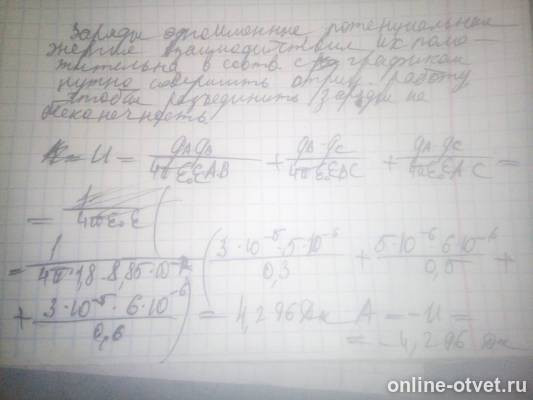 Заряды одноименные потенциальная
энергия взаимодействия их поло-
жительна в соотв с графиком
нужно совершить отриц. работу
чтобы разъединить заряды на
бесконечность.
U = qA·qB/4πε₀εAB + qB·qC/4πε₀εBC + qA·qC/4πε₀εAC =
= 1/4πε₀ε (
= 1/4π·1,8·8,85·10 ( 3·10⁻⁵·5·10⁻⁶/0,3 + 5·10⁻⁶·6·10⁻⁶/0,5 +
+ 3·10⁻⁵·6·10⁻⁶/0,6 ) = 4,296Дж A = -U =
= -4,296 Дж
online-otvet.ru